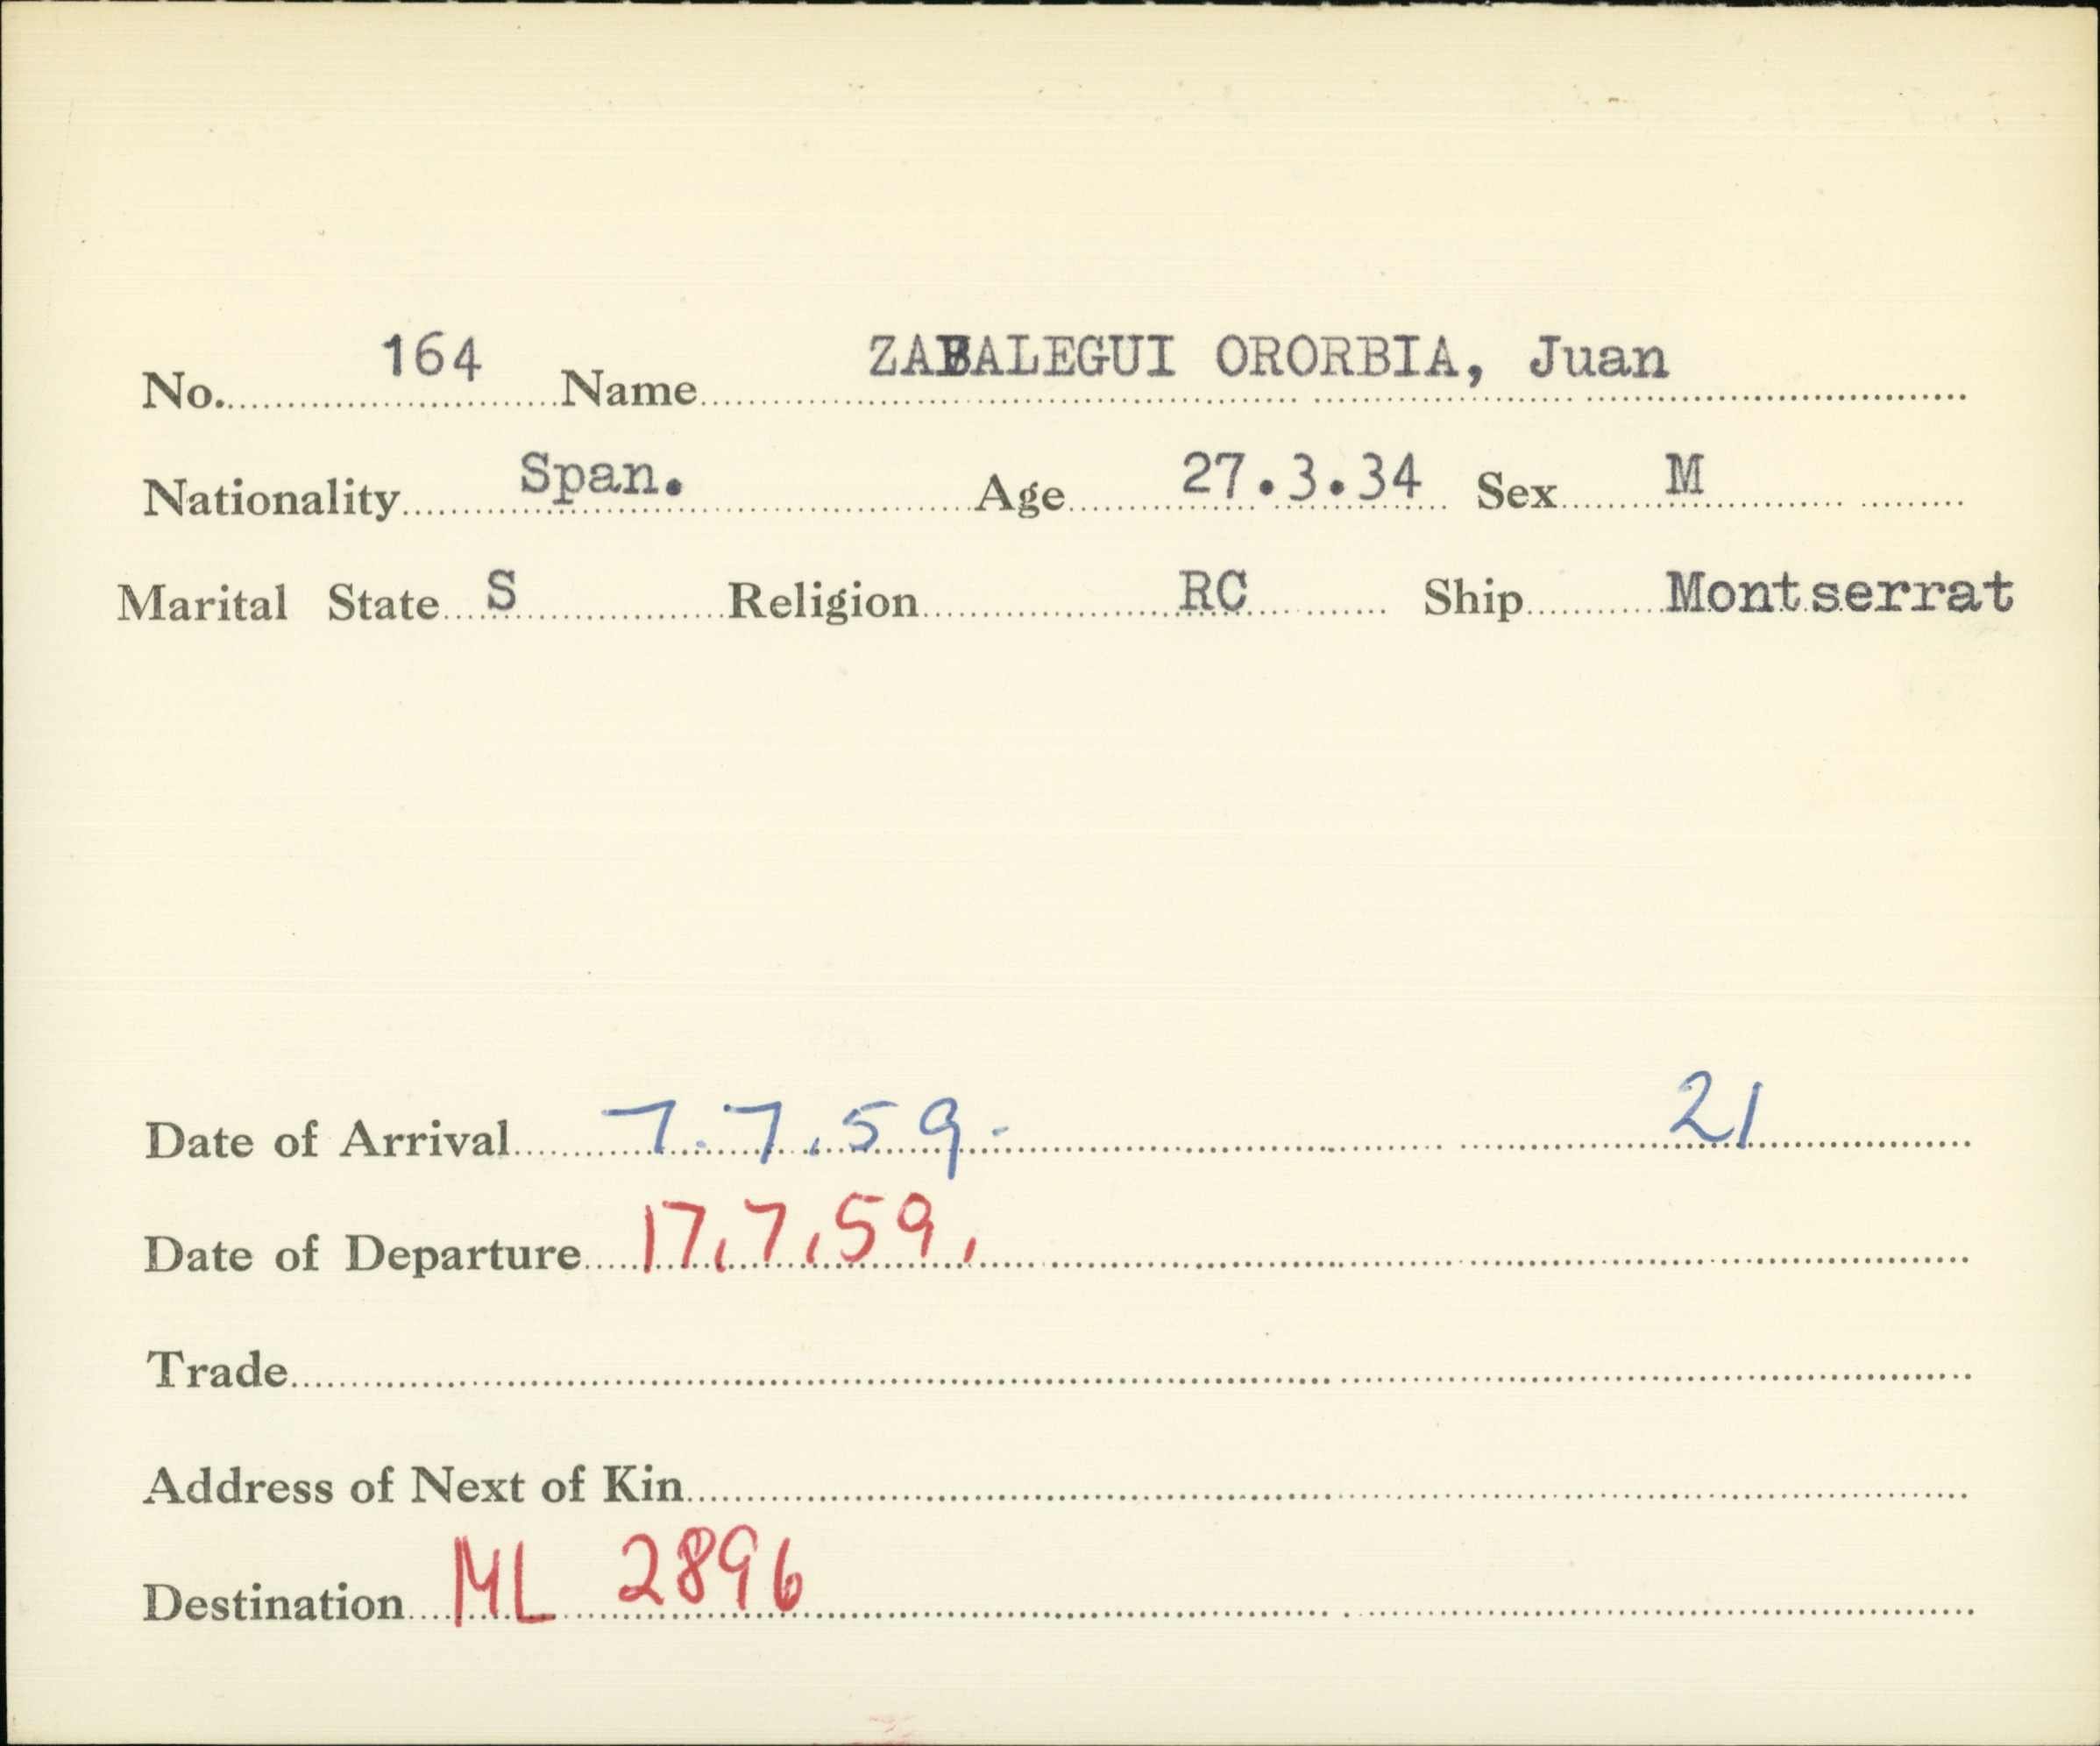 No. 164 Name ZABALEGUI ORORBIA, Juan
Nationality Span. Age 27.3.34 Sex M
Marital State S Religion RC Ship Montserrat
Date of Arrival 7.7.59. 21
Date of Departure 17.7.59.
Trade
Address of Next of Kin
Destination ML 2896